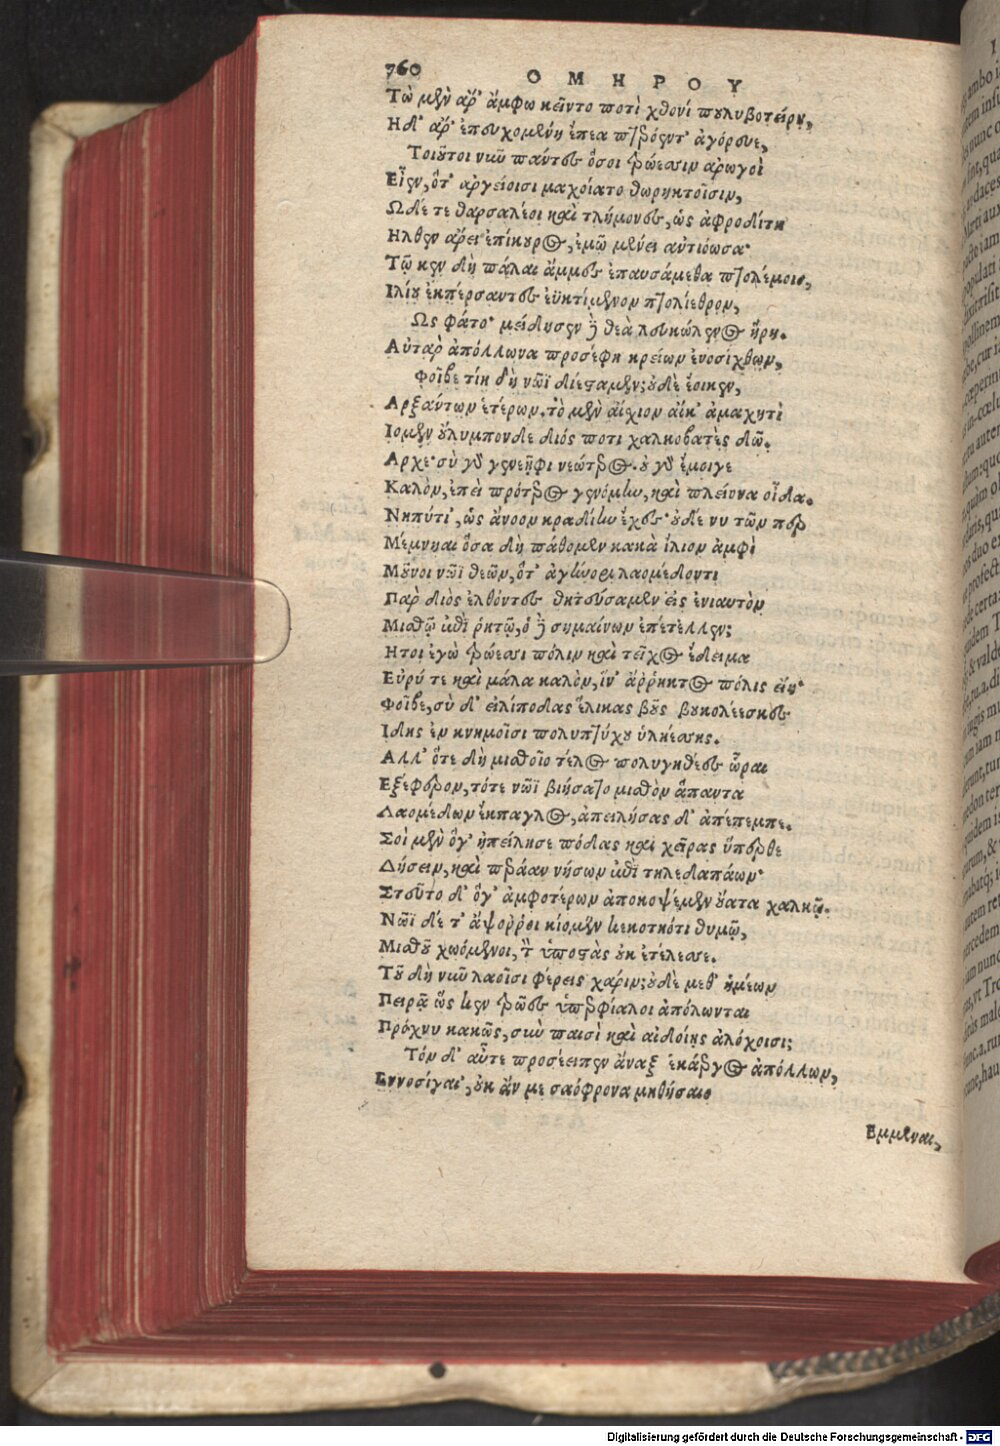 760 ΟΜΗΡΟΥ
Τὼ μὲν ἄρ' ἄμφω κεῖντο ποτὶ χθονὶ πουλυβοτείρῃ,
Ηδ' ἄρ' ἐπευχομένη ἔπεα πτερόεντ' ἀγόρευε,
Τοιοῦτοι νῦν πάντες ὅσοι τρώεσσιν ἀρωγοὶ
Εἶεν, ὅτ' ἀργείοισι μαχοίατο θωρηκτοῖσιν,
Ωδέ τε θαρσαλέοι καὶ τλήμονες, ὡς ἀφροδίτη
Ηλθεν ἄρει ἐπίκουρος, ἐμῷ μένει αὐτιόωσα·
Τῷ κεν δὴ πάλαι ἄμμες ἐπαυσάμεθα πτολέμοιο,
Ιλίου ἐκπέρσαντες ἐϋκτίμενον πτολίεθρον,
Ως φάτο· μείδησεν δὲ θεὰ λευκώλενος ἥρη.
Αὐτὰρ ἀπόλλωνα προσέφη κρείων ἐνοσίχθων,
Φοῖβε τίη δὴ νῶϊ διέσταμεν; οὐδὲ ἔοικεν,
Αρξάντων ἑτέρων. τὸ μὲν αἴσχιον αἴκ' ἀμαχητὶ
Ιομεν οὔλυμπονδε διός ποτι χαλκοβατὲς δῶ.
Αρχε· σὺ γὰρ γενεῆφι νεώτερος. οὐ γὰρ ἔμοιγε
Καλὸν, ἐπεὶ πρότερος γενόμην, καὶ πλείονα οἶδα.
Νηπύτι', ὡς ἄνοον κραδίην ἔχες· οὐδέ νυ τῶν περ
Μέμνηαι ὅσα δὴ πάθομεν κακὰ ἴλιον ἀμφὶ
Μοῦνοι νῶϊ θεῶν, ὅτ' ἀγήνορι λαομέδοντι
Παρ διὸς ἐλθόντες θητεύσαμεν εἰς ἐνιαυτὸν
Μισθῷ ἐπὶ ῥητῷ, ὁ δὲ σημαίνων ἐπέτελλεν;
Ητοι ἐγὼ τρώεσσι πόλιν καὶ τεῖχος ἔδειμα
Εὐρύ τε καὶ μάλα καλὸν, ἵν' ἄῤῥηκτος πόλις εἴη·
Φοῖβε, σὺ δ' εἰλίποδας ἕλικας βοῦς βουκολέεσκες
Ιδης ἐν κνημοῖσι πολυπτύχου ὑληέσσης.
Αλλ' ὅτε δὴ μισθοῖο τέλος πολυγηθέες ὧραι
Εξέφερον, τότε νῶϊ βιήσατο μισθὸν ἅπαντα
Λαομέδων ἔκπαγλος, ἀπειλήσας δ' ἀπέπεμπε.
Σοὶ μὲν ὅγ' ἠπείλησε πόδας καὶ χεῖρας ὕπερθε
Δήσειν, καὶ περάαν νήσων ἐπὶ τηλεδαπάων·
Στεῦτο δ' ὅγ' ἀμφοτέρων ἀποκοψέμεν οὔατα χαλκῷ.
Νῶϊ δέ τ' ἄψοῤῥοι κίομεν κεκοτηότι θυμῷ,
Μισθοῦ χωόμενοι, τὸν ὑποστὰς οὐκ ἐτέλεσσε.
Τοῦ δὴ νῦν λαοῖσι φέρεις χάριν; οὐδὲ μεθ' ἡμέων
Πειρᾷ ὥς κεν τρῶες ὑπερφίαλοι ἀπόλωνται
Πρόχνυ κακῶς, σὺν παισὶ καὶ αἰδοίῃς ἀλόχοισι;
Τὸν δ' αὖτε προσέειπεν ἄναξ ἑκάεργος ἀπόλλων,
Εννοσίγαι', οὐκ ἄν με σαόφρονα μηθήσαιο
Εμμεναι,
Digitalisierung gefördert durch die Deutsche Forschungsgemeinschaft - DFG